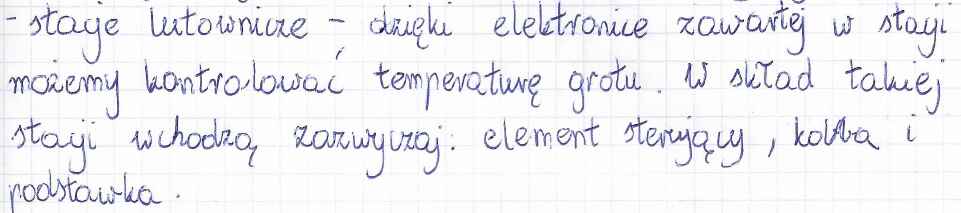 - stacje lutownicze - dzięki elektronice zawartej w stacji
możemy kontrolować temperaturę grotu. W skład takiej
stacji wchodzą zazwyczaj: element sterujący, kolba i
podstawka.